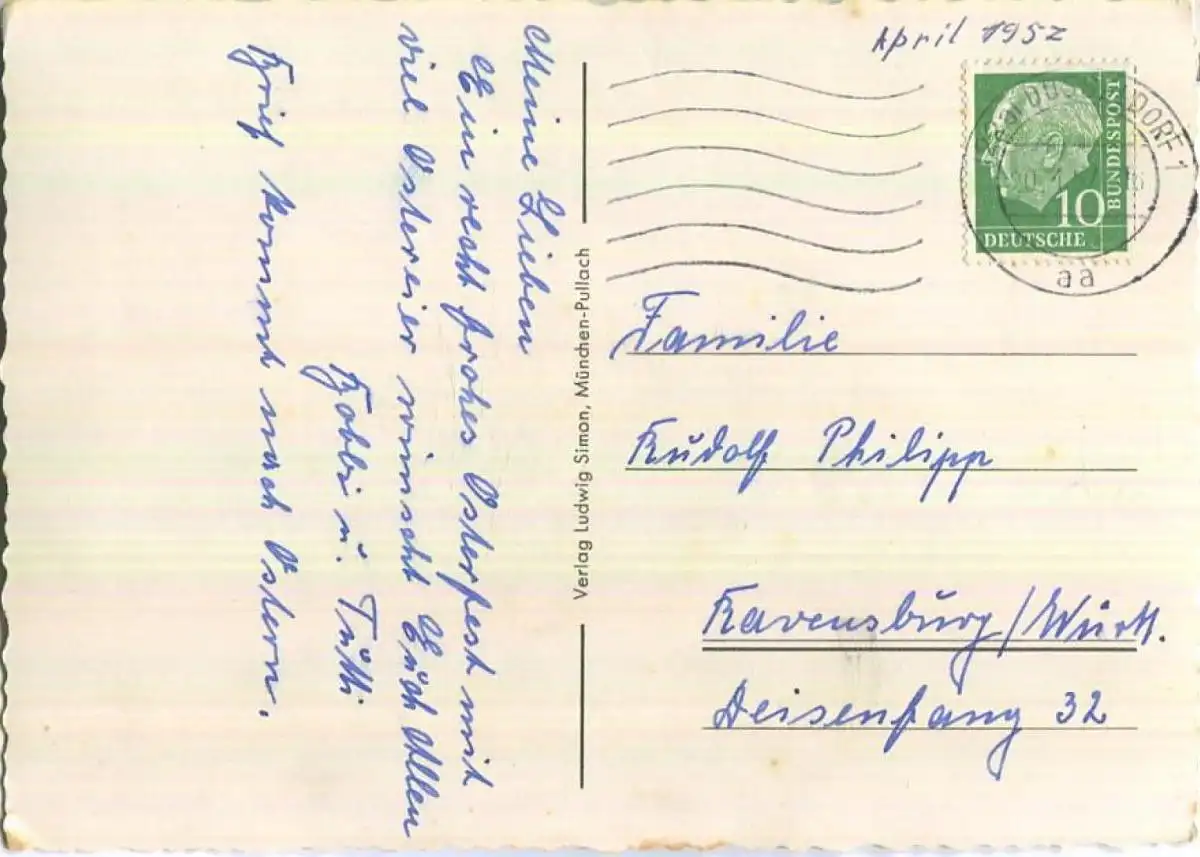 April 1957
DÜSSELDORF 1
aa
10
BUNDESPOST
DEUTSCHE
Familie
Rudolf Philipp
Ravensburg/Württ.
Deisenfang 32
Verlag Ludwig Simon, München-Pullach
Meine Lieben
Ein recht frohes Osterfest mit
viel Ostereier wünscht Euch Allen
Bobbi u. Tutti
Brief kommt nach Ostern.